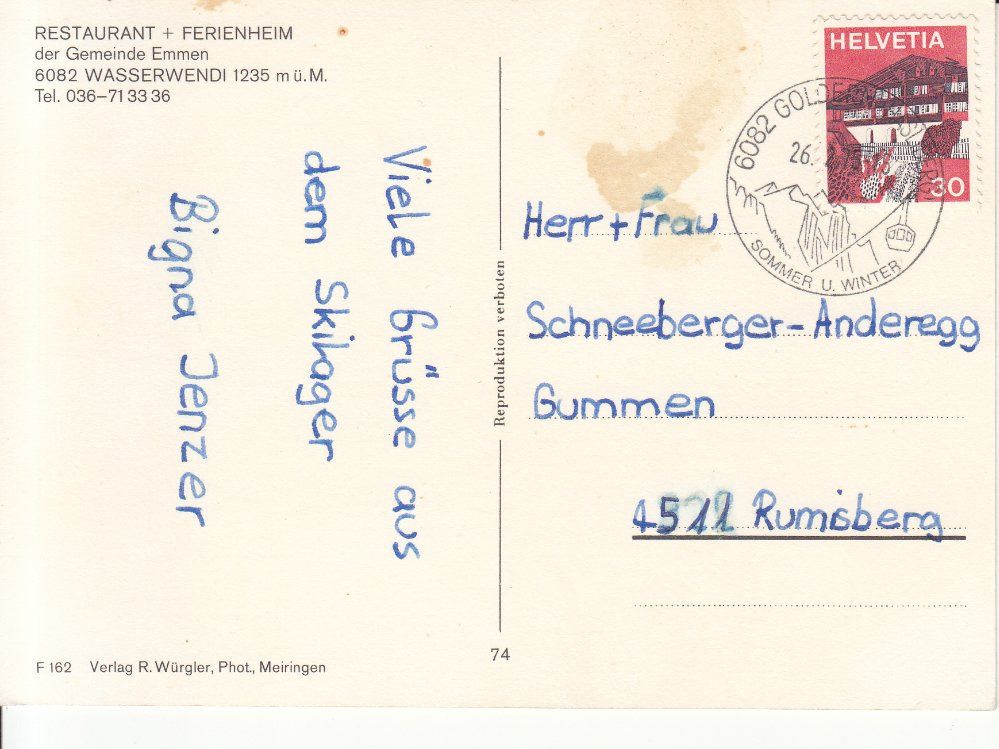 RESTAURANT + FERIENHEIM
der Gemeinde Emmen
6082 WASSERWENDI 1235 m ü. M.
Tel. 036–71 33 36
Viele Grüsse aus
dem Skilager
Bigna Jenzer
F 162 Verlag R. Würgler, Phot., Meiringen
Reproduktion verboten
74
HELVETIA
30
6082
26.
SOMMER U. WINTER
Herr + Frau
Schneeberger-Anderegg
Gummen
Rumisberg